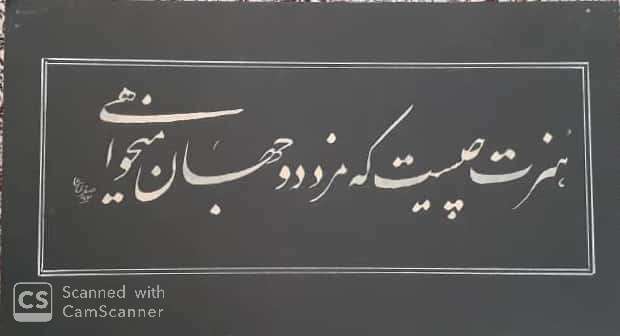 هنرت چیست که مزد دو جهان میخواهی
CS Scanned with
CamScanner